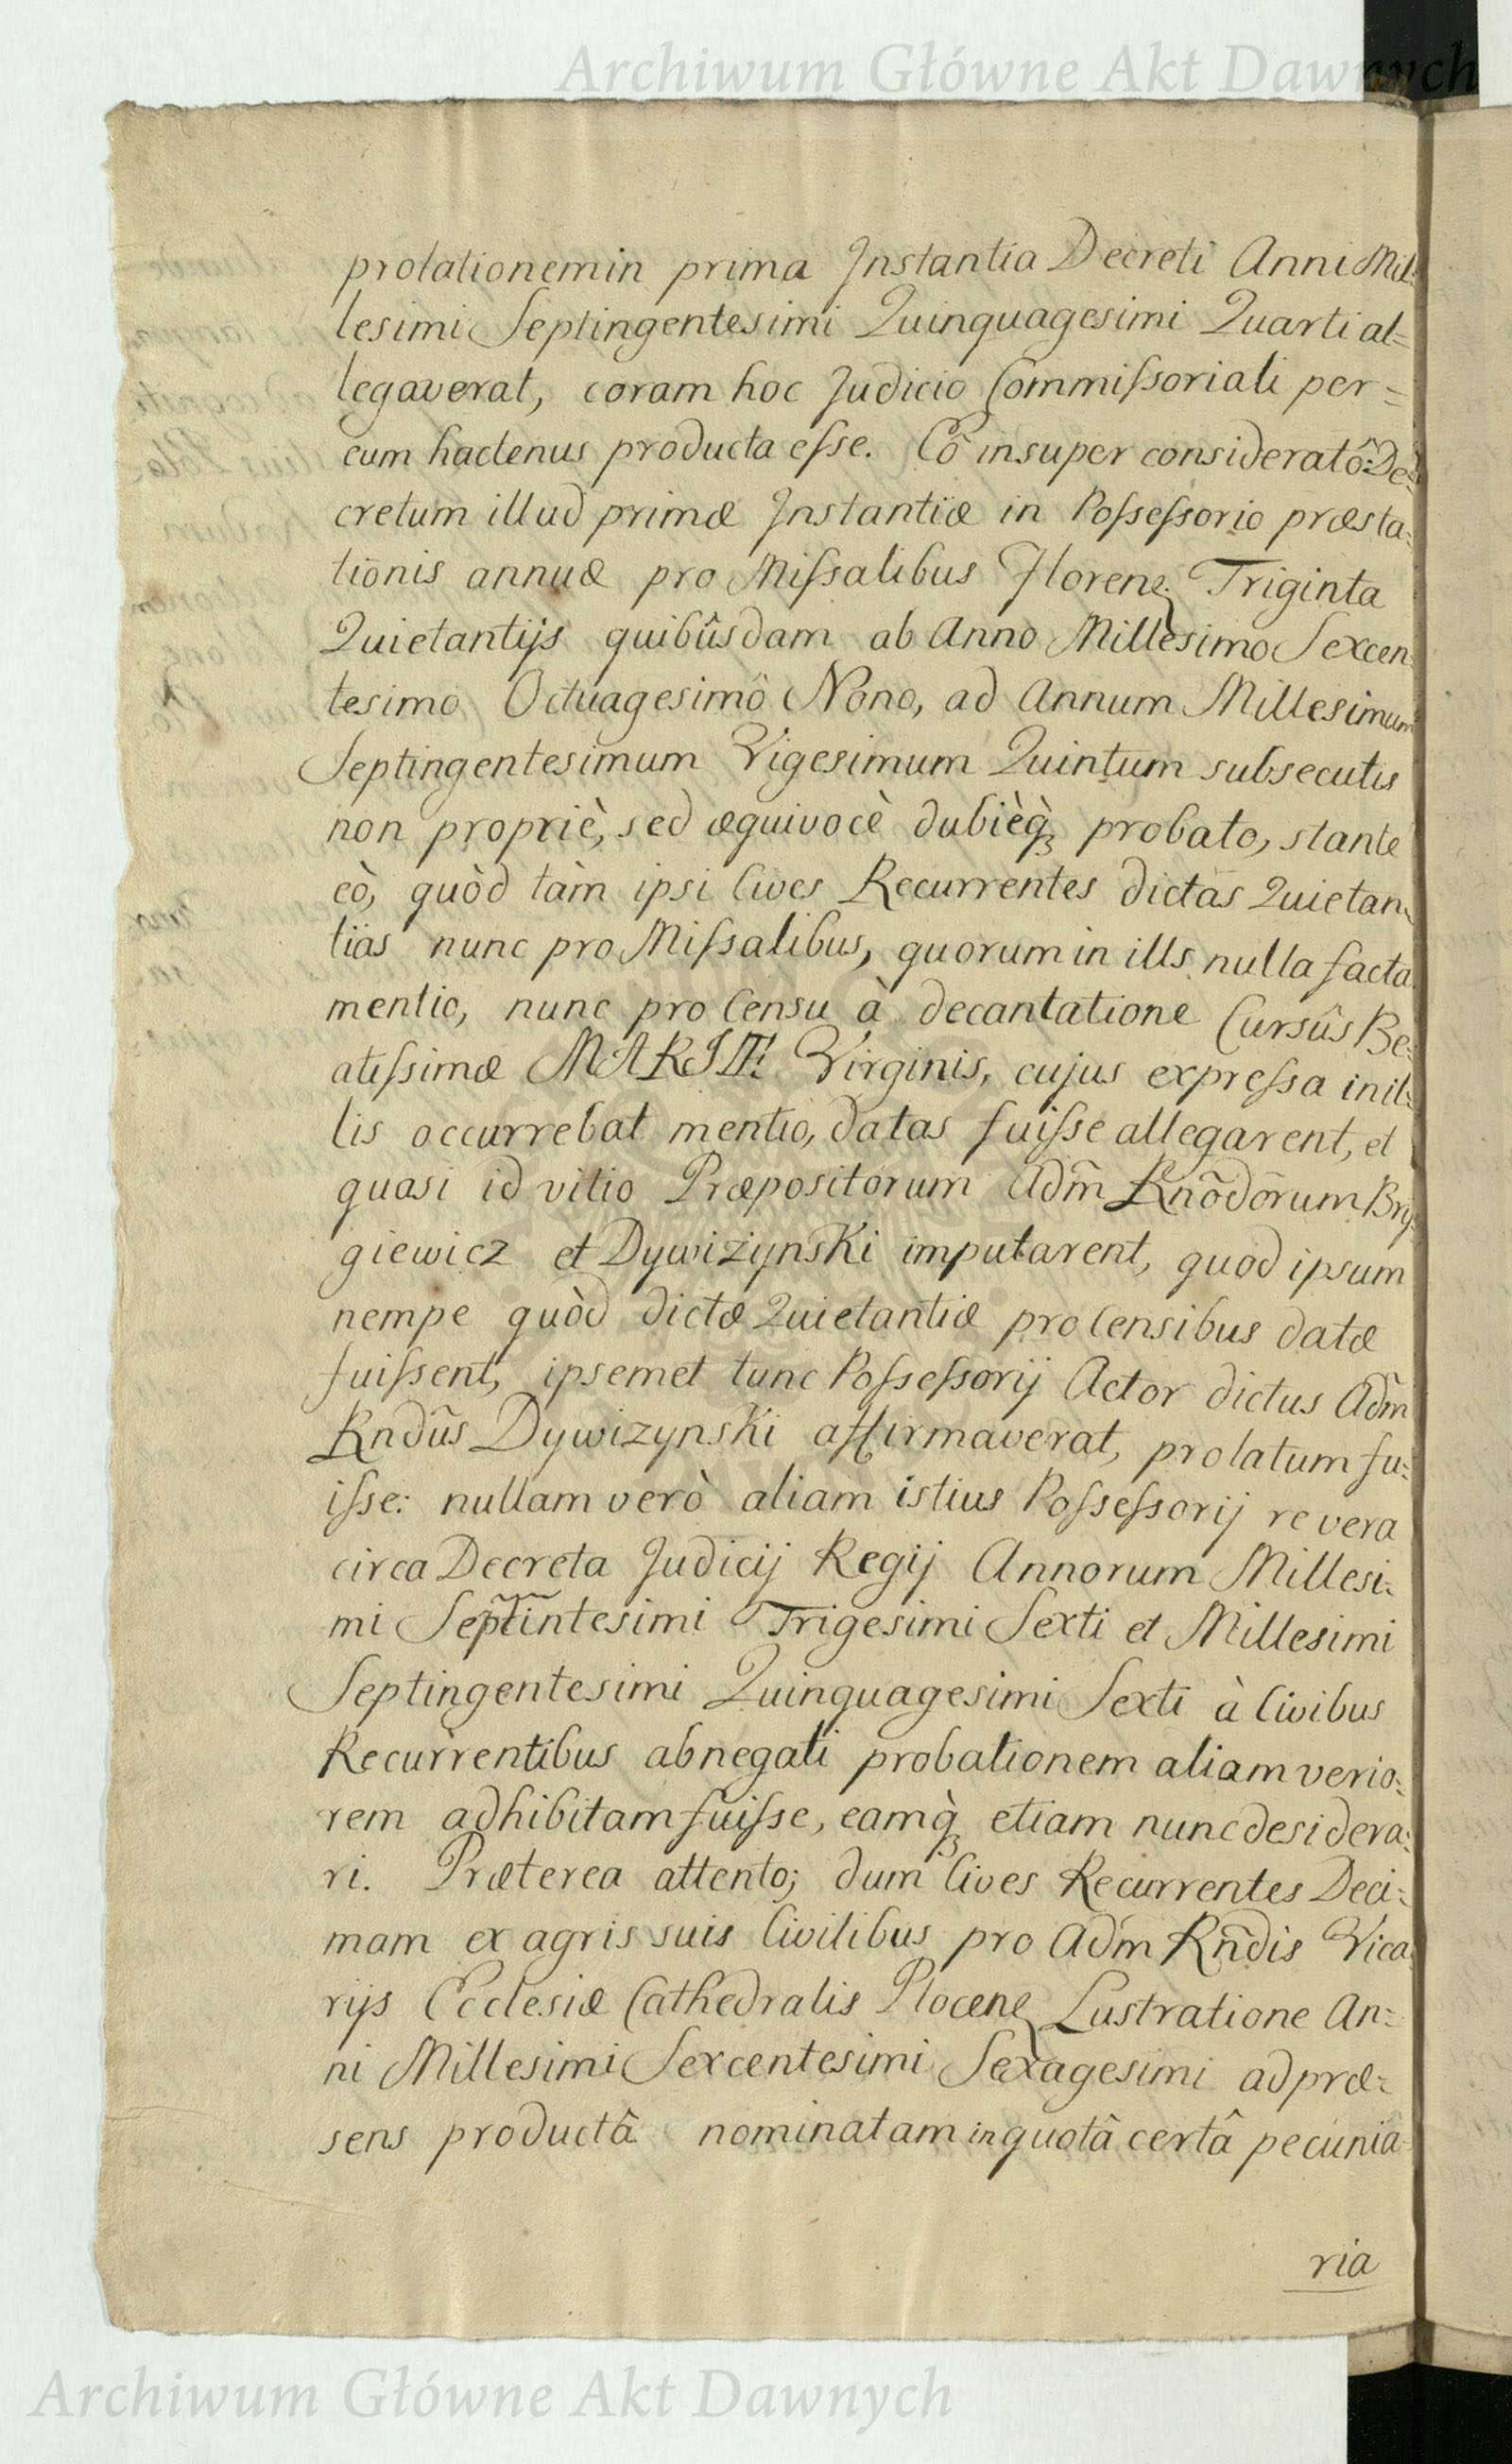 Archiwum Główne Akt Dawnych
prolationem in prima Instantia Decreti Anni Mil=
lesimi Septingentesimi Quinquagesimi Quarti al=
legaverat, coram hoc Judicio Commiſsoriali per=
eum hactenus producta eſse. Eô insuper consideratô: De=
cretum illud primæ Instantiæ in Poſseſsorio præsta=
tionis annuæ pro Miſsalibus Florenę Triginta
Quietantijs quibûsdam ab Anno Millesimo Sexcen=
tesimo Octuagesimô Nono, ad Annum Millesimum
Septingentesimum Vigesimum Quintum subsecutis
non propriè, sed æquivocè dubièq̀ꝫ probato, stante
eò, quòd tàm ipsi Cives Recurrentes dictas Quietan=
tias nunc pro Miſsalibus, quorum in ills nulla facta
mentio, nunc pro Censu à decantatione Cursûs Be=
atiſsimæ MARIÆ Virginis, cujus expreſsa in il=
lis occurrebat mentio, datas fuiſse allegarent, et
quasi id vitio Præpositorum Adm̃ Rnõdõrum Bry=
giewicz et Dywiżynski imputarent, quod ipsum
nempe quòd dictæ Quietantiæ pro Censibus datæ
fuiſsent, ipsemet tunc Poſseſsorij Actor dictus Adm̃
Rndũs Dywizynski affirmaverat, prolatum fu=
iſse: nullam verò aliam istius Poſseſsorij re vera
circa Decreta Judicij Regij Annorum Millesi=
mi Sep̃tĩntesimi Trigesimi Sexti et Millesimi
Septingentesimi Quinquagesimi Sexti à Civibus
Recurrentibus abnegati probationem aliam verio=
rem adhibitam fuiſse, eamq̀ꝫ etiam nunc desidera=
ri. Præterea attento; dum Cives Recurrentes Deci=
mam ex agris suis Civilibus pro Adm Rñdis Vica=
rijs Ecclesiæ Cathedralis Plocenę Lustratione An=
ni Millesimi Sexcentesimi Sexagesimi ad præ=
sens productâ nominatam in quotâ certâ pecunia=
ria
Archiwum Główne Akt Dawnych